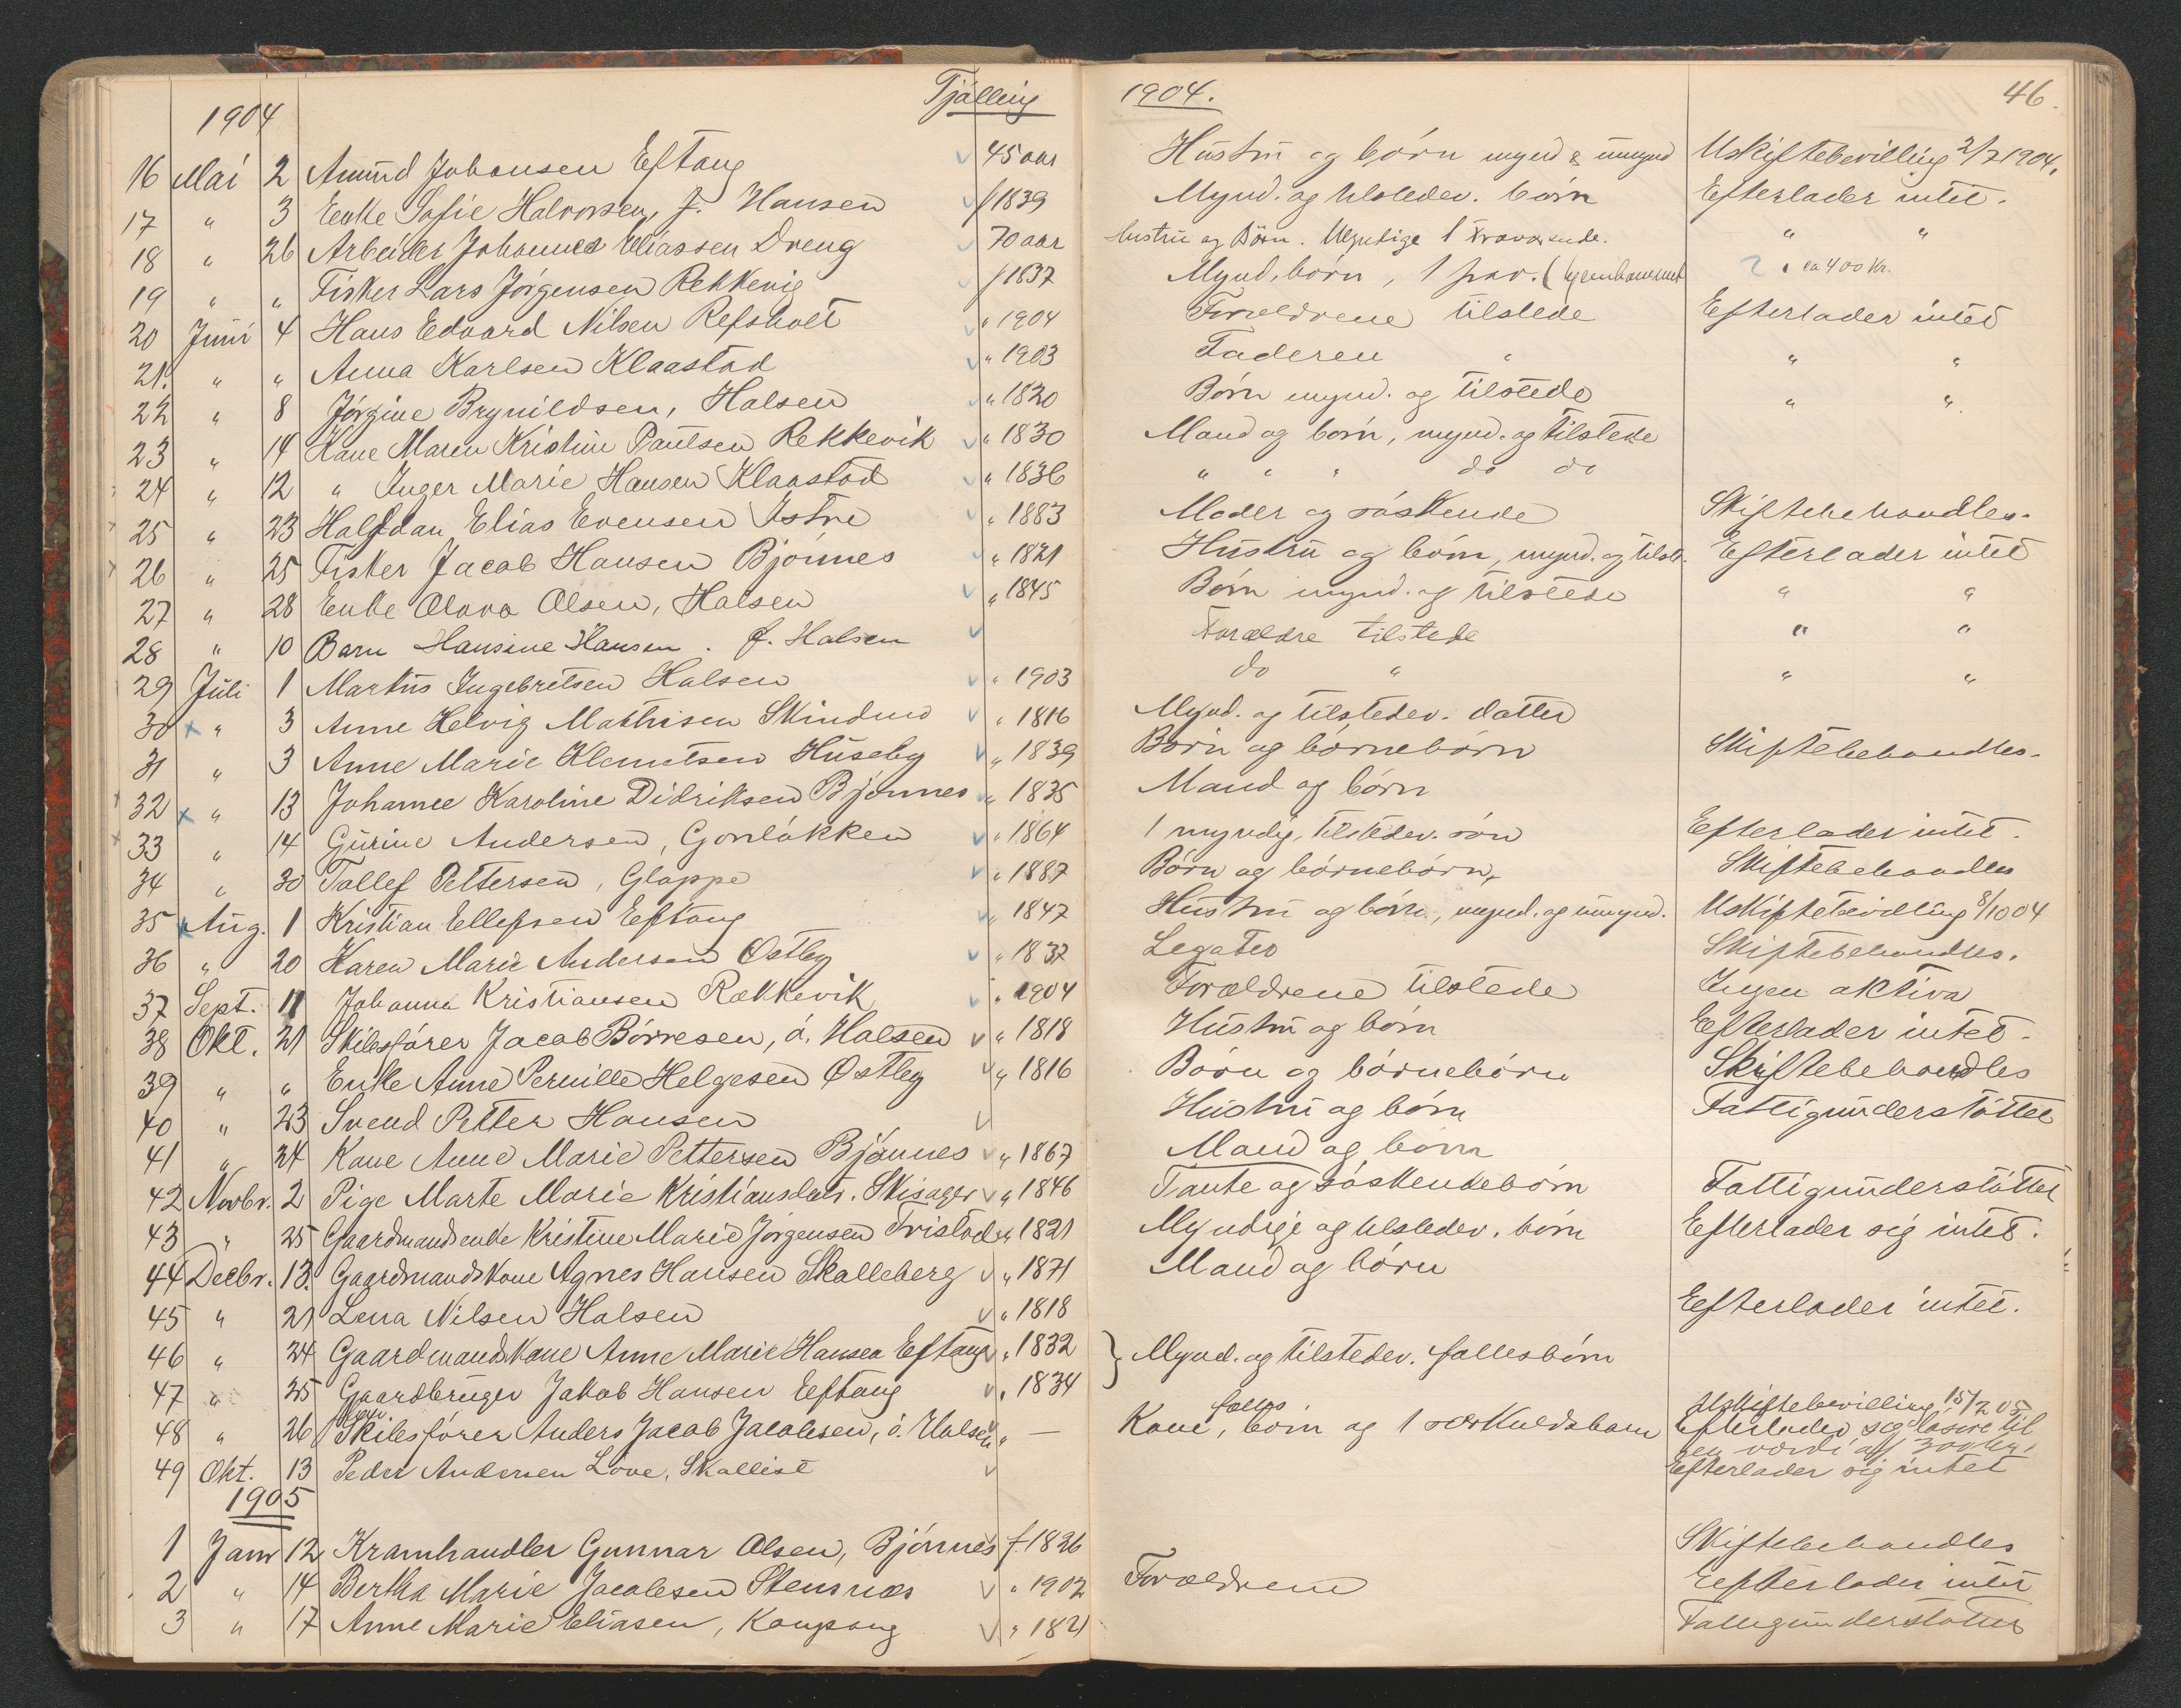 Tjølling
1904
1904.
46.
16 Mai 2 Amund Johansen Eftang 45 aar Hustru og børn mynd & umynd Uskiftebevilling 2/7 1904.
17 " 3 Enke Sofie Halvorsen, f. Hansen f 1839 Mynd. og tilstedev. børn Efterlader intet.
18 " 26 Arbeider Johannes Eliassen Dreng 70 aar Hustru og Børn. Myndige 1 fraværende. " "
19 " " Fisker Lars Jørgensen Rekkevig f 1837 Mynd. børn, 1 frav. ( ca 400 Kr.
20 Juni 4 Hans Edvard Nilsen Refsholt " 1904 Forældrene tilstede Efterlader intet
21. " " Anna Karlsen Klaastad " 1903 Faderen " " "
22 " 8 Jørgine Brynildsen, Halsen " 1820 Børn mynd. og tilstede " "
23 " 14 Kone Maren Kristine Paulsen Rekkevik " 1830 Mand og børn, mynd. og tilstede
24 " 12 " Inger Marie Hansen Klaastad " 1836 " " " do do
25 " 23 Halfdan Elias Evensen Istre " 1883 Moder og søskende Skiftebehandles.
26 " 25 Fisker Jacob Hansen Bjønnes " 1821 Hustru og børn, mynd. og tilst. Efterlader intet
27 " 28 Enke Olava Olsen, Halsen " 1845 Børn mynd. og tilstede " "
28 " 10 Barn Hansine Hansen. f. Halsen Forældre tilstede " "
29 Juli 1 Martin Ingebretsen Halsen " 1903 do " " "
30 x " 3 Anne Helvig Mathisen Skindmo " 1816 Mynd. og tilstedev. datter
31 " 3 Anne Marie Klemetsen Huseby " 1839 Børn og børnebørn Skiftebehandles.
32 x " 13 Johanne Karoline Didriksen Bjønnes " 1835 Mand og børn
33 " 14 Gurine Andersen, Gonløkken " 1864 1 myndig, tilstedev. søn Efterlader intet.
34 " 30 Tollef Pettersen, Gloppe " 1887 Børn og børnebørn, Skiftebehandles
35 x Aug. 1 Kristian Ellefsen Eftang " 1847 Hustru og børn, mynd. og umynd. Uskiftebevilling 8/10 04
36 " 20 Karen Marie Andersen Østby " 1832 Legater Skiftebehandles.
37 Sept. 11 Johanna Kristiansen Rækkevik " 1904 Forældrene tilstede Ingen aktiva
38 Okt. 21 Skibsfører Jacob Børresen, ø. Halsen " 1818 Hustru og børn Efterlader intet.
39 " " Enke Anne Pernille Helgesen Østby " 1816 Børn og børnebørn Skiftebehandles
40 " 23 Svend Petter Hansen Hustru og børn Fattigunderstøttet
41 " 24 Kone Anne Marie Pettersen Bjønnes " 1867 Mand og børn
42 Novbr. 2 Pige Marte Marie Kristiansdatr. Skisager " 1846 Tante og søskendebørn Fattigunderstøttet
43 " 25 Gaardmandsenke Kristine Marie Jørgensen Tristad " 1821 Myndige og tilstedev. børn Efterlader sig intet.
44 Decbr. 13. Gaardmandskone Agnes Hansen Skalleberg " 1871 Mand og børn
45 " 21 Lena Nilsen Halsen " 1818 Efterlader intet.
46 " 24 Gaardmandskone Anne Marie Hansen Eftang " 1832 } Mynd. og tilstedev. fællesbørn
47 " 25 Gaardbruger Jakob Hansen Eftang " 1834
48 " 26 Skibsfører Anders Jacob Jacobsen, ø. Halsen " — Kone, fælles børn og 1 særkuldsbarn Uskiftebevilling 15/2 05 Efterlader sig løsøre til en værdi af 300 kr.
49 Okt. 13 Peder Andersen Love, Skallist Efterlader sig intet
1905
1 Janr 12 Kramhandler Gunnar Olsen, Bjønnes f. 1826 Skiftebehandles
2 " 14 Bertha Marie Jacobsen Stensnæs " 1902 Forældrene Efterlader intet
3 " 17 Anne Marie Eliasen, Kaupang " 1821 Fattigunderstøttet